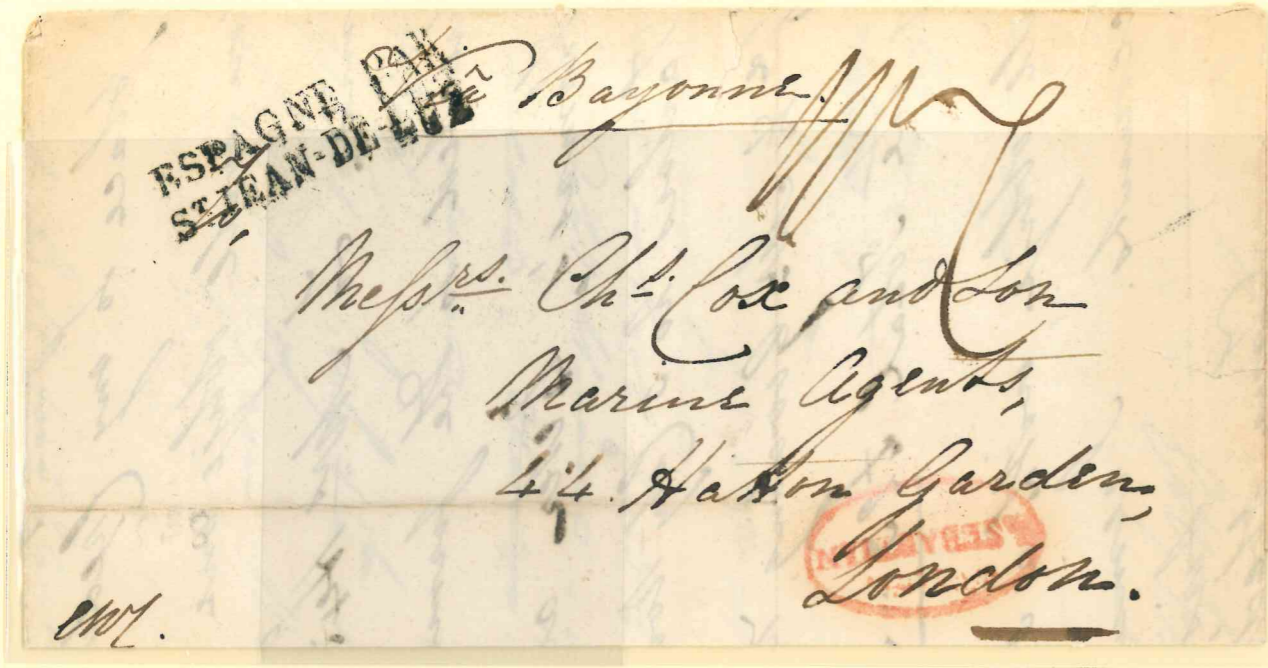 ESPAGNE PAR
ST JEAN-DE-LUZ
Via Bayonne.
Messrs. Chs. Cox and Son
Marine Agents,
44. Hatton Garden,
London.